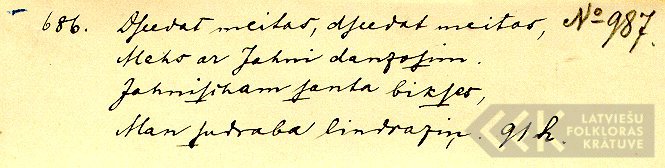 686. Dſeedat meitas, dſeedat meitas, № 987.
Mehs ar Jahni danzoſim.
Jahniſcham ſanta bikſes,
Man ſudraba lindraziņ. 91 h.
LATVIEŠU
FOLKLORAS
KRĀTUVE